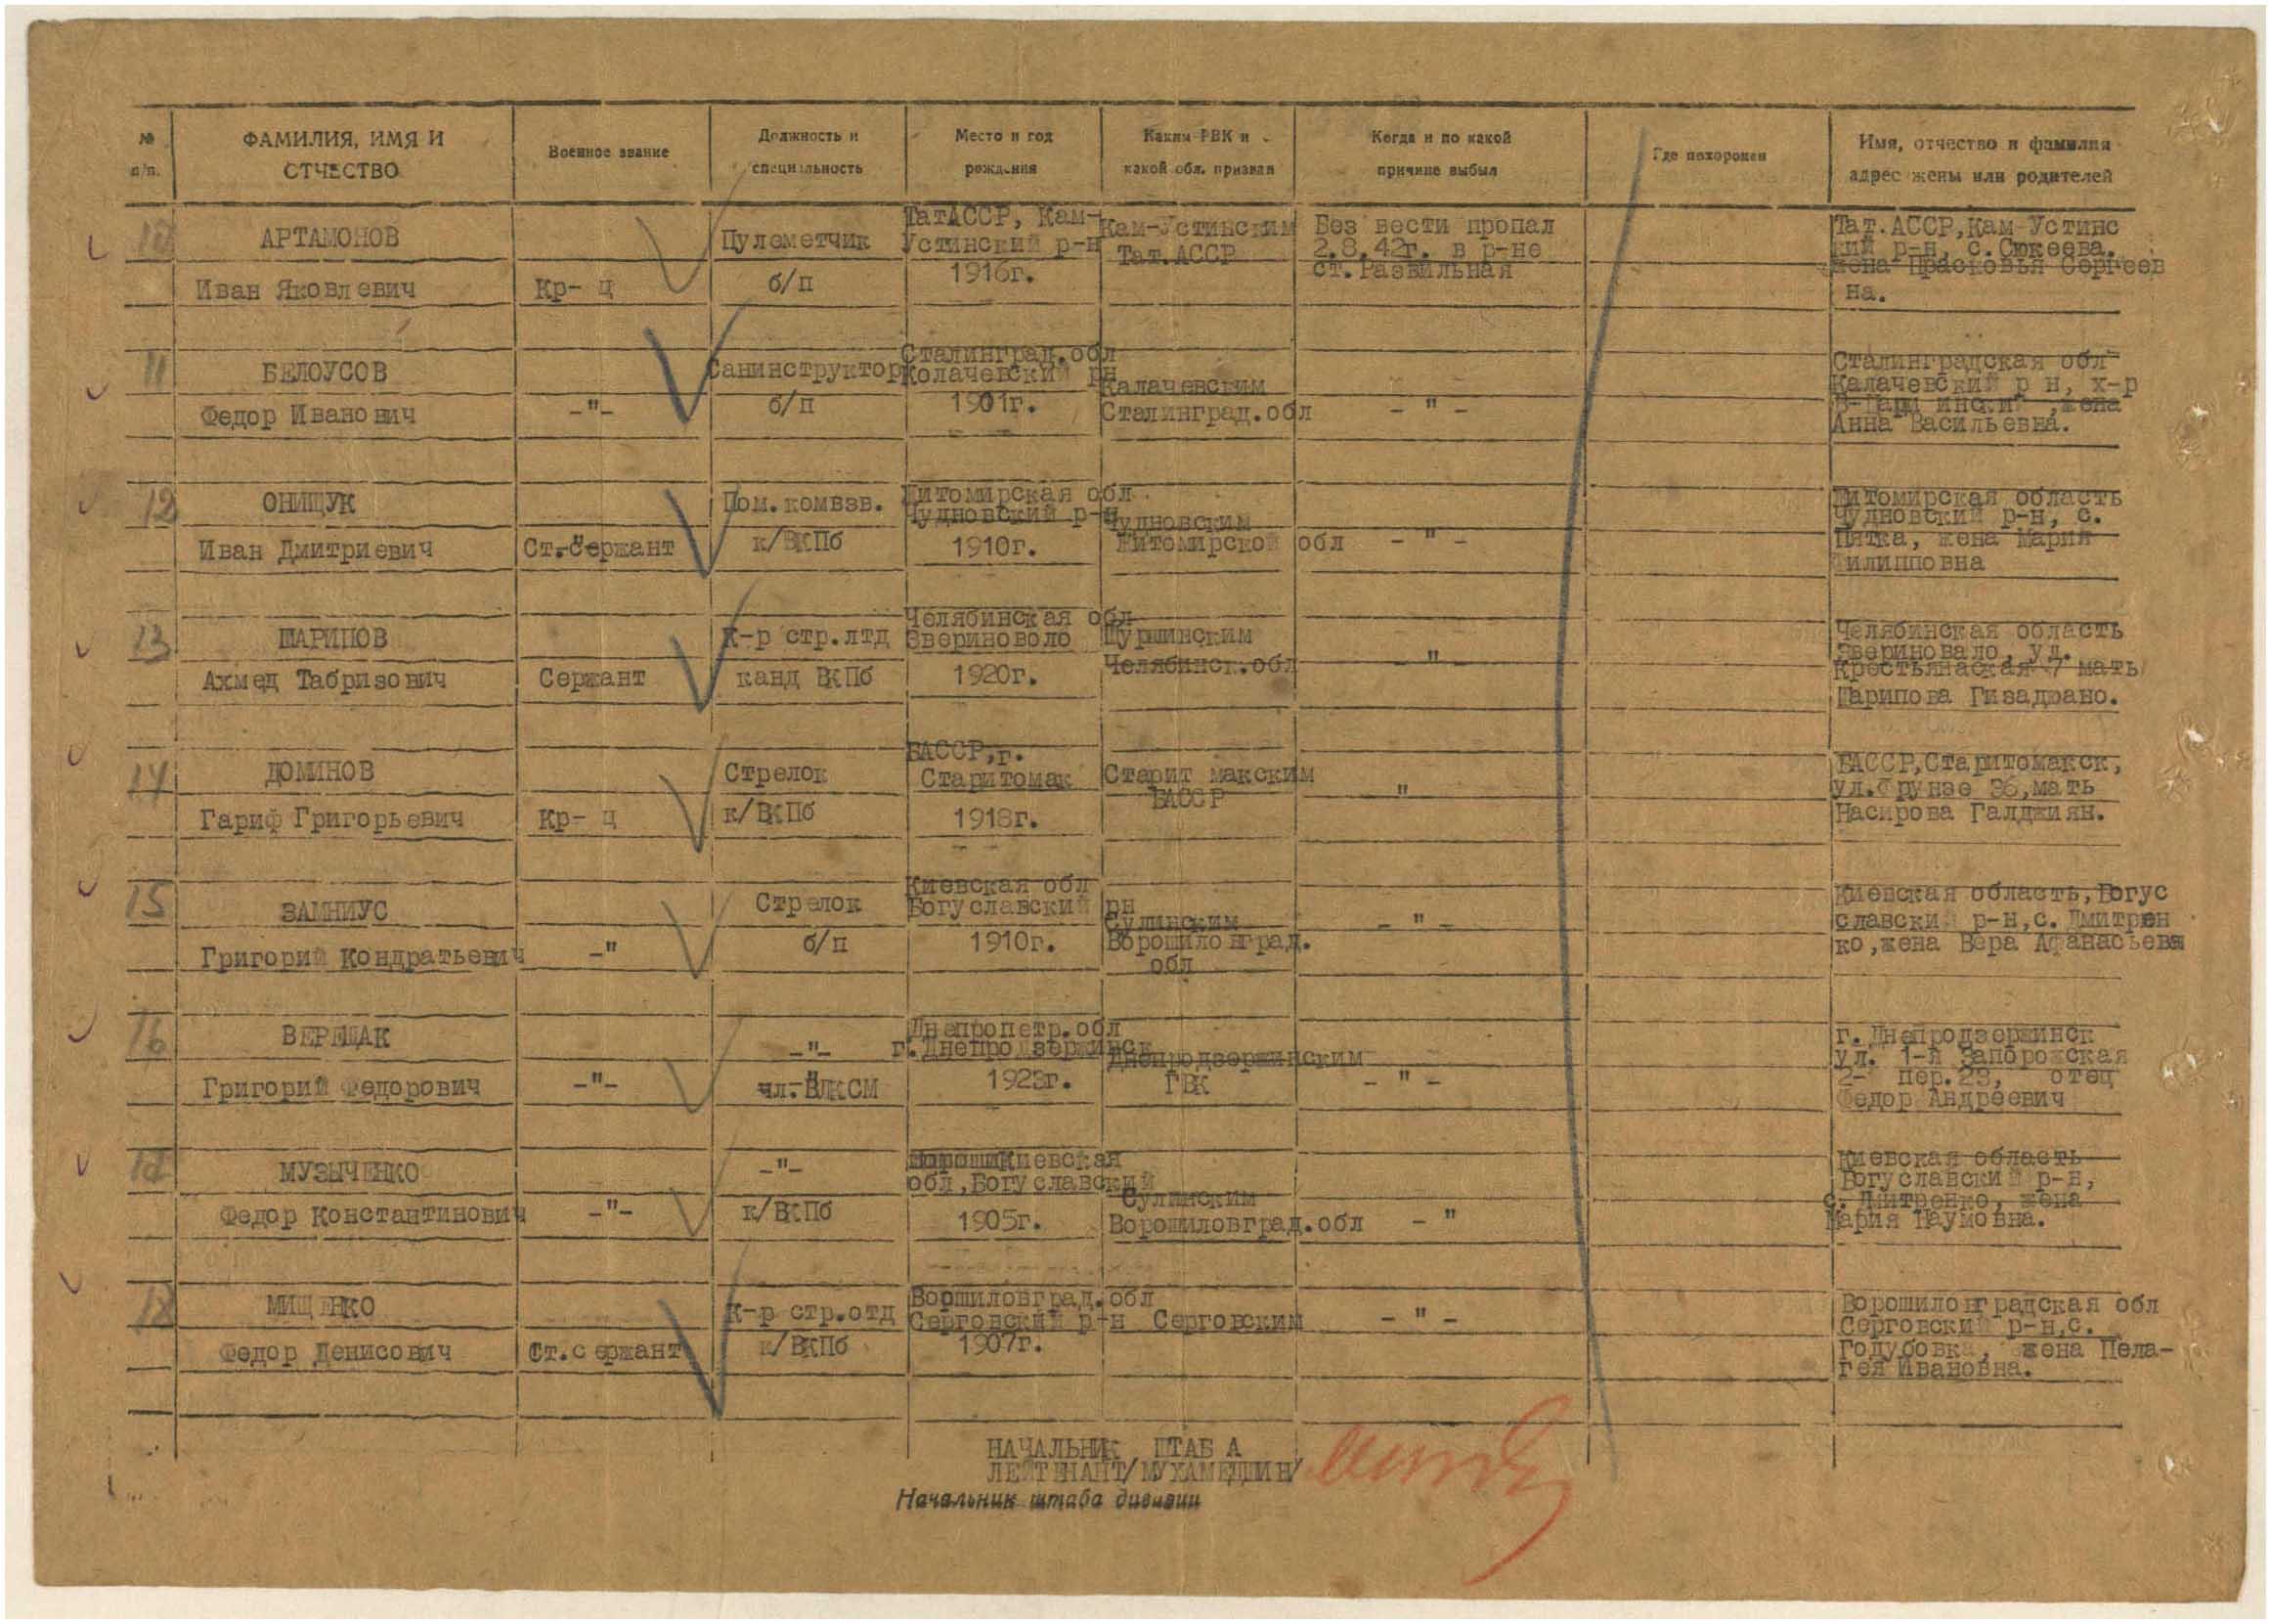 № п/п.
ФАМИЛИЯ, ИМЯ И ОТЧЕСТВО
Военное звание
Должность и специальность
Место и год рождения
Каким РВК и какой обл. призван
Когда и по какой причине выбыл
Где похоронен
Имя, отчество и фамилия адрес жены или родителей
10
АРТАМОНОВ
Иван Яковлевич
Кр-ц
Пулеметчик
б/п
ТатАССР, Кам-
Устинский р-н
1916г.
Кам-Устинским
Тат.АССР
Без вести пропал
2.8.42г. в р-не
ст. Развильная
Тат.АССР,Кам-Устинс
кий р-н, с.Сюкеева.
жена Прасковья Сергеев
на.
11
БЕЛОУСОВ
Федор Иванович
-"-
Санинструктор
б/п
Сталинград.обл
Колачевский рн
1901г.
Калачевским
Сталинград.обл
- " -
Сталинградская обл
Калачевский р н, х-р
жена
Анна Васильевна.
12
ОНИЩУК
Иван Дмитриевич
Ст.-сержант
Пом.комвзв.
к/ВКПб
Житомирская обл.
Чудновский р-н
1910г.
Чудновским
Житомирской обл
- " -
Житомирская область
Чудновский р-н, с.
Пятка, жена Мария
Филипповна
13
ШАРИПОВ
Ахмед Табризович
Сержант
К-р стр.лтд
канд ВКПб
Челябинская обл
Звериноволо
1920г.
Щуршинским
Челябинск.обл
"
Челябинская область
Звериновало, ул.
Крестьянаская 7 мать
Шарипова Гизаджано.
14
ДОМИНОВ
Гариф Григорьевич
Кр- ц
Стрелок
к/ВКПб
БАССР,г.
Старитомак
1918г.
Старит макским
БАССР
"
БАССР,Старитомакск,
ул.Фрунзе 36,мать
Насирова Галджиян.
15
ЗАМНИУС
Григорий Кондратьевич
-"
Стрелок
б/п
Киевская обл
Богуславский рн
1910г.
Сулинским
Ворошиловград.
обл
- " -
Киевская область,Богус
славский р-н,с. Дмитрен
ко,жена Вера Афанасьева
16
ВЕРЕЩАК
Григорий Федорович
-"-
-"-
чл.-ВЛКСМ
Днепропетр.обл
г.Днепродзержинск
1923г.
Днепродзержинским
ГВК
- " -
г. Днепродзержинск
ул. 1-й Запорожская
2- пер.23, отец
Федор Андреевич
17
МУЗЫЧЕНКО
Федор Константинович
-"-
-"-
к/ВКПб
Киевская
обл,Богуславский
1905г.
Сулинским
Ворошиловград.обл
- "
Киевская область
Богуславский р-н,
с. Дмитренко, жена
Мария Наумовна.
18
МИЩЕНКО
Федор Денисович
Ст.сержант
К-р стр.отд
к/ВКПб
Воршиловград.обл
Серговский р-н
1907г.
Серговским
- " -
Ворошиловградская обл
Серговский р-н,с.
Годубовка, жена Пела-
гея Ивановна.
НАЧАЛЬНИК ШТАБ А
ЛЕЙТЕНАНТ/МУХАМЕДШИН/
Начальник штаба дивизии